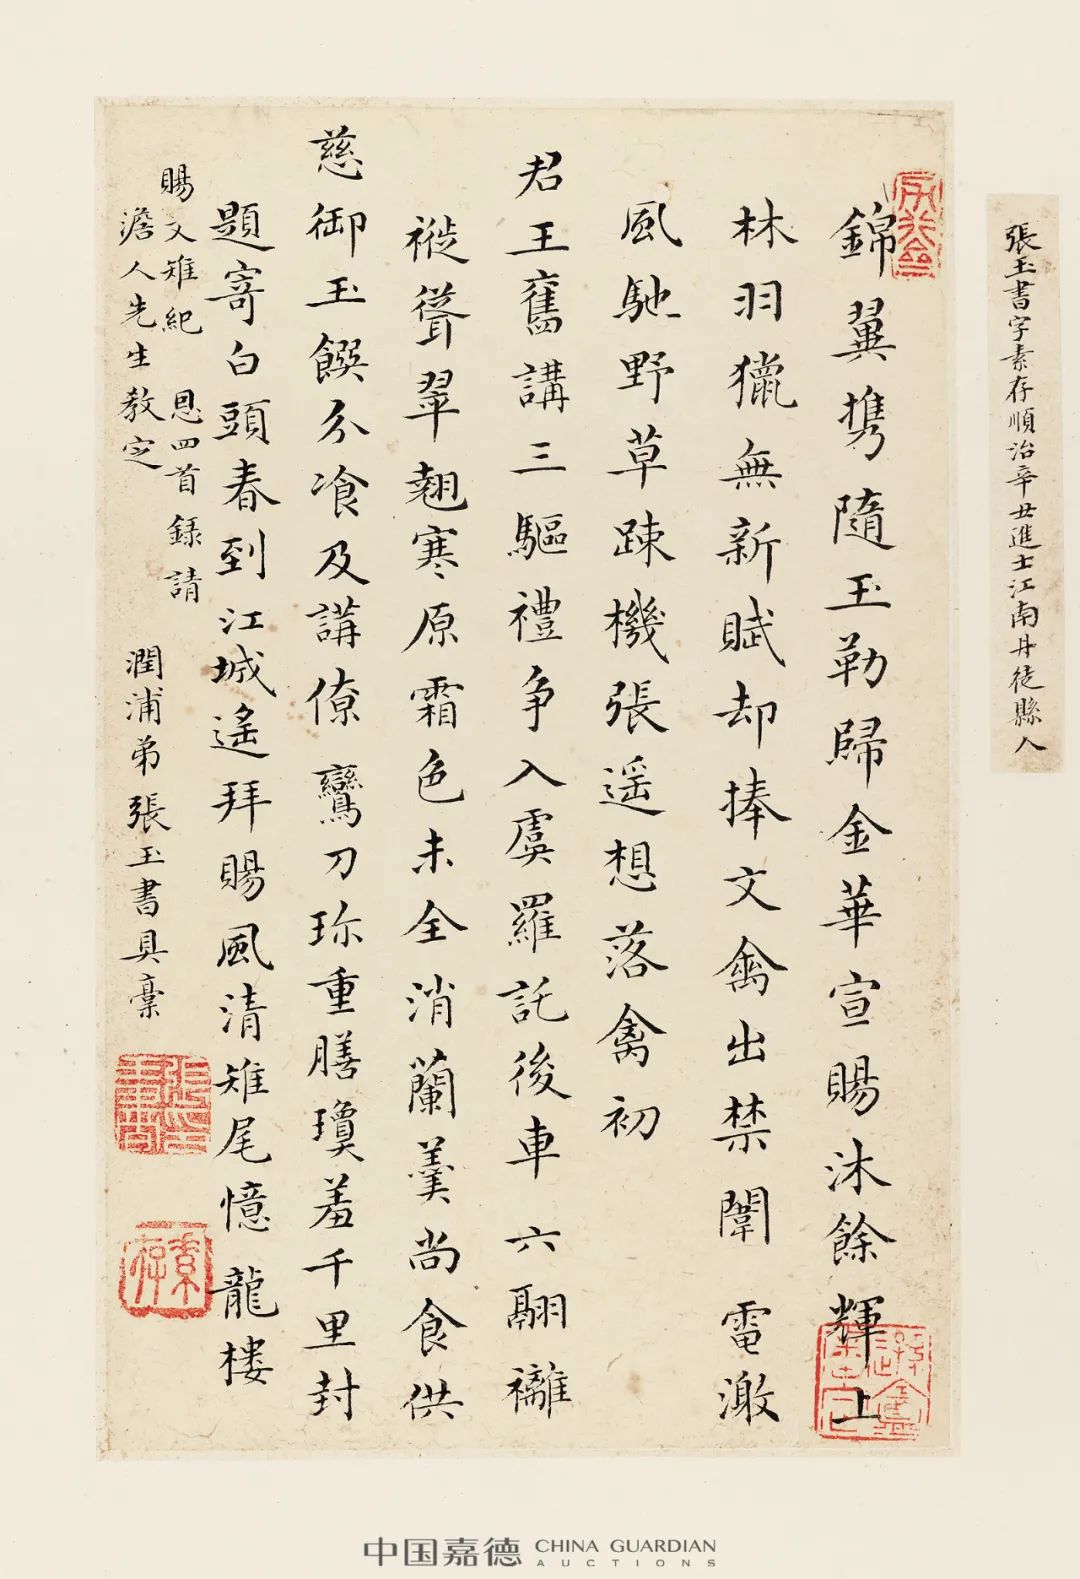 張玉書字素存順治辛丑進士江南丹徒縣人
錦翼携隨玉勒歸金華宣賜沐餘輝上
林羽獵無新賦却捧文禽出禁闈 電激
風馳野草疎機張遥想落禽初
君王舊講三驅禮争入虞羅託後車 六翮褵
褷聳翠翹寒原霜色未全消蘭羹尚食供
慈御玉饌分飡及講僚 鸞刀珎重膳瓊羞千里封
題寄白頭春到江城遙拜賜風清雉尾憶龍樓
賜文雉紀 恩四首錄請
澹人先生教定
潤浦弟張玉書具稾
張玉書印
素存
中国嘉德 CHINA GUARDIAN
AUCTIONS